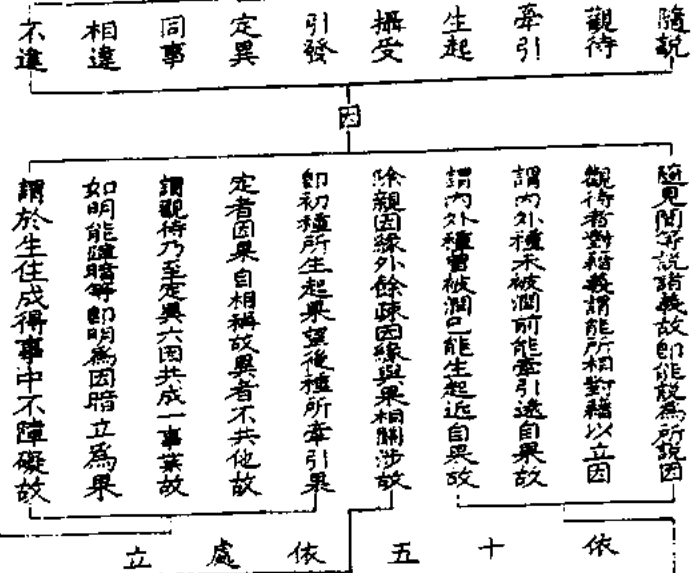 隨說
觀待
牽引
生起
攝受
引發
定異
同事
相違
不違
因
隨見聞等說諸義故即能說為所說因
觀待者對藉義謂能所相對藉以立因
謂內外種未被潤前能牽引遠自果故
謂內外種曾被潤已能生起近自果故
除親因緣外餘疎因緣與果相關涉故
即初種所生起果望後種所牽引果
定者因果自相稱故異者不共他故
謂觀待乃至定異六因共成一事業故
如明能違暗等即明為因暗立為果
謂於生住成得事中不障礙故
依十五依處立